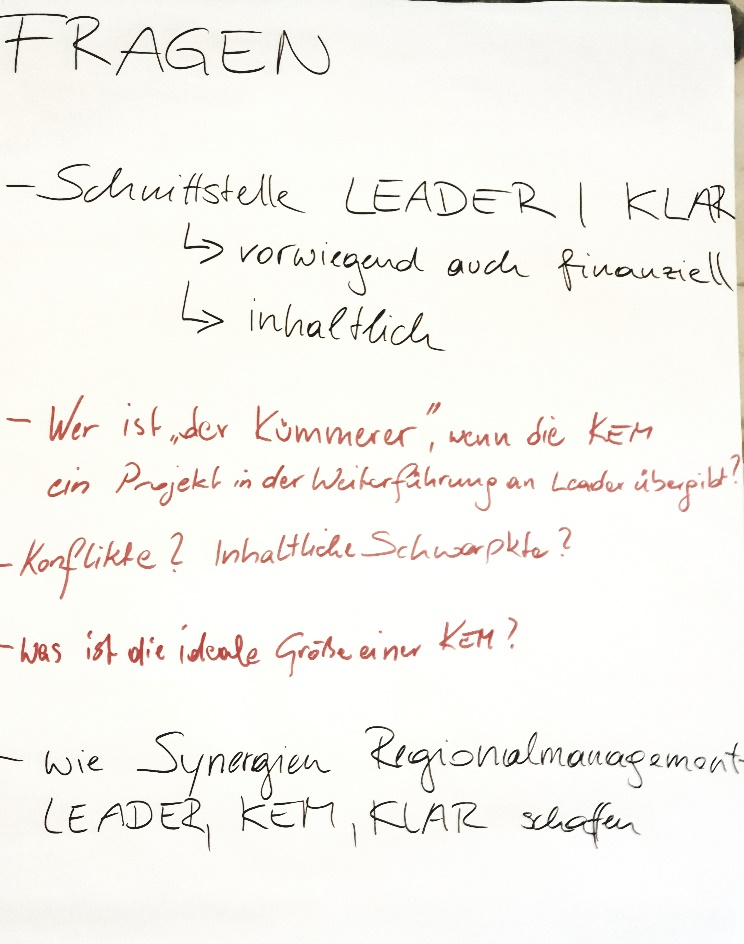 FRAGEN
- Schnittstelle LEADER | KLAR
↳ vorwiegend auch finanziell
↳ inhaltlich
- Wer ist „der Kümmerer", wenn die KEM
ein Projekt in der Weiterführung an Leader übergibt?
- Konflikte? Inhaltliche Schwerpkte?
- Was ist die ideale Größe einer KEM?
- wie Synergien Regionalmanagement-
LEADER, KEM, KLAR schaffen